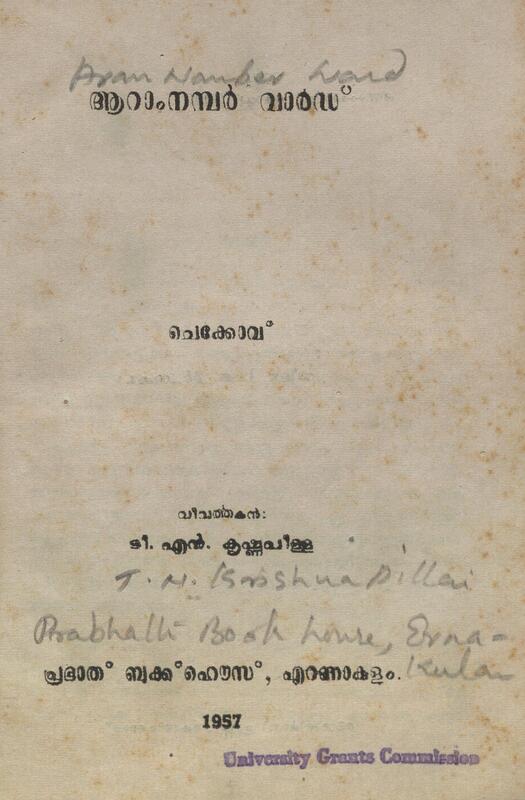 Aram Number Ward
ആറാംനമ്പർ വാർഡ്
ചെക്കോവ്
വിവർത്തകൻ:
ടി. എൻ. കൃഷ്ണപിള്ള
T. N. Krishna Pillai
Prabhath Book house, Erna-
kulam
പ്രഭാത് ബുക്ക്ഹൌസ്, എറണാകുളം.
1957
University Grants Commission